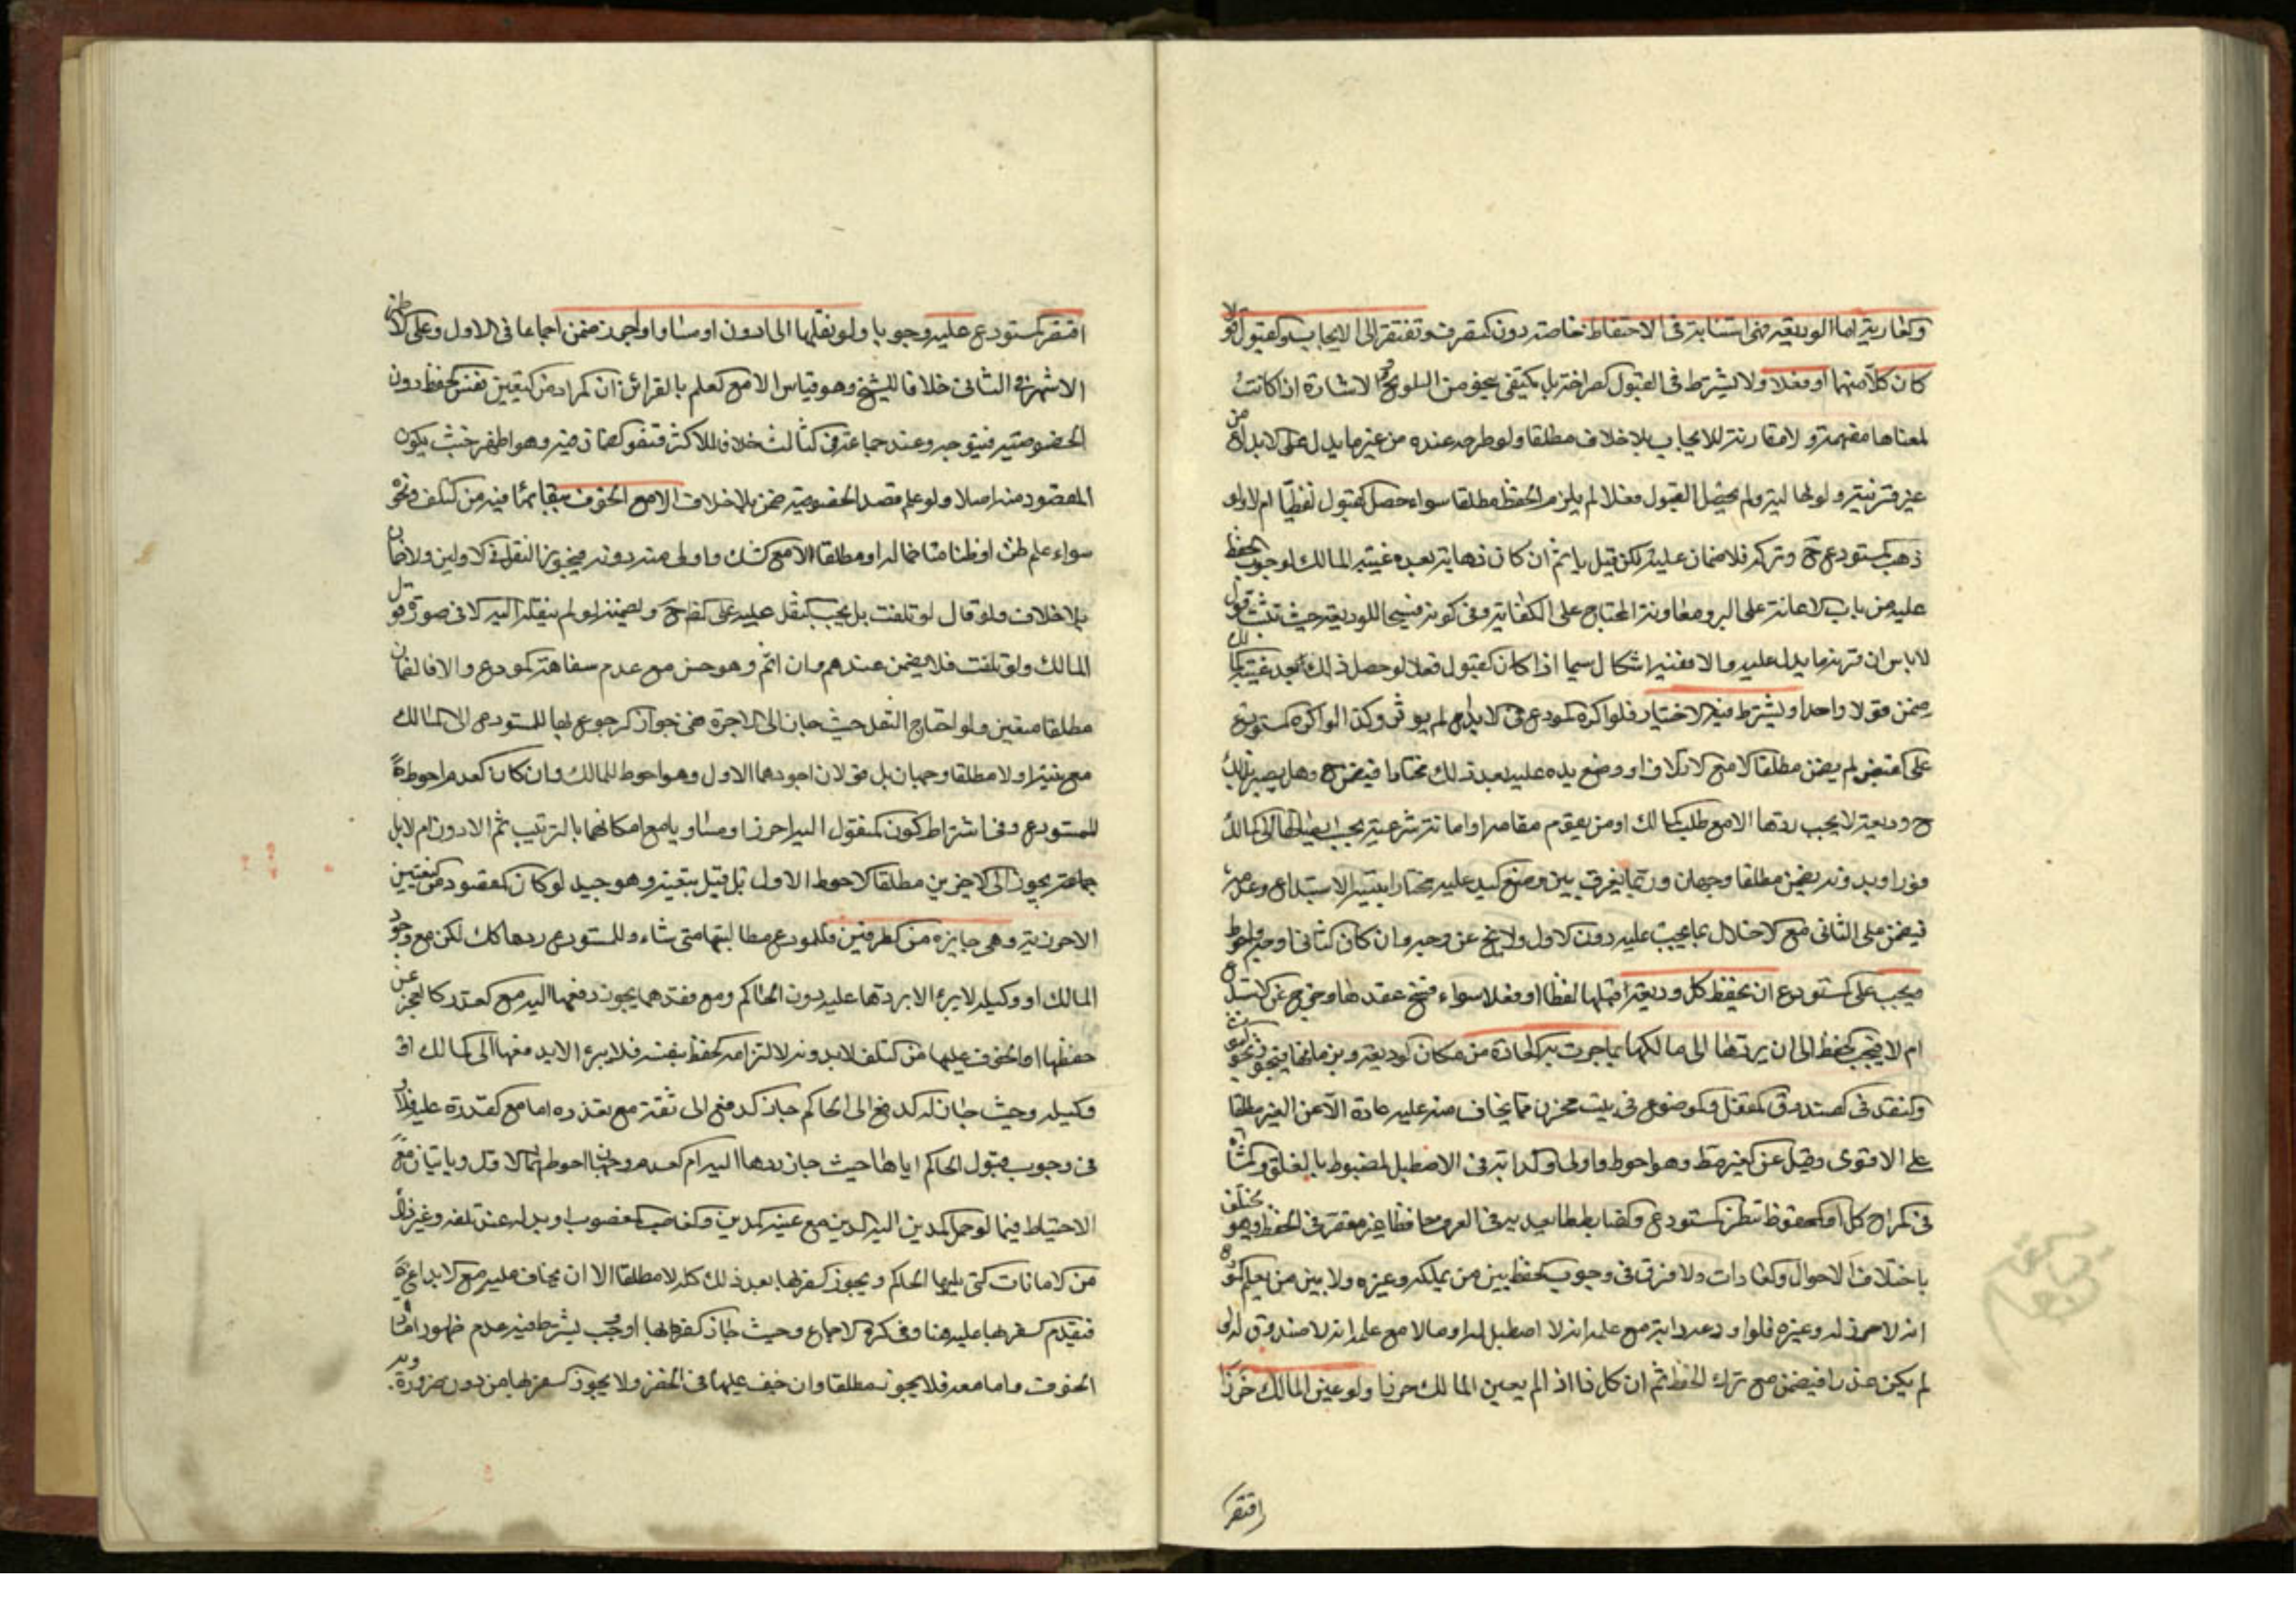 والعارية اما الوديعة فهي استنابة في الاحتفاظ خاصة دون التصرف وتفتقر الى الايجاب والقبول قولا
كان كلا منهما او فعلا ولا يشترط في القبول الصراحة بل يكتفى بنحو من التلويح والاشارة اذا كانت
لمعناها مفهمة ولا مقارنته للايجاب بلا خلاف مطلقا ولو طرحه عنده من غير ما يدل على الايداع من
غير قرينة ولو حالية ولم يحصل القبول فعلا لم يلزم الحفظ مطلقا سواء حصل القبول لفظيا ام لا ولو
ذهب المستودع ح وتركه فلا ضمان عليه لكن قيل ياثم ان كان ذهابه بعد غيبة المالك لوجوب الحفظ
عليه من باب الاعانة على البر ومعاونة المحتاج على الكفاية وفي كونه فسخا للوديعة حيث تثبت قول
لا باس ان قرنه ما يدل عليه والا ففيه اشكال سيما اذا كان القبول فعلا لو حصل ذلك بعد غيبة المالك
ضمن قولا واحدا ويشترط فيه الاختيار فلو اكره المودع في الايداع لم يؤثر وكذا لو اكره المستودع
على القبض لم يضمن مطلقا الا مع الاتلاف او وضع يده عليه بعد ذلك مختارا فيضمن ح وهل يصير بذلك
ح وديعة لا يجب ردها الا مع طلب المالك او من يقوم مقامه او امانة شرعية يجب ايصالها الى المالك
فورا وبدونه يضمن مطلقا وجهان وربما يفرق بين وضع اليد عليه مختارا بنية الاستيداع وعدمه
فيضمن على الثاني مع الاخلال بما يجب عليه دون الاول ولا يخ عن وجه وان كان الثاني اوجه واحوط
ويجب على المستودع ان يحفظ كل وديعة قبلها لفظا او فعلا سواء فسخ عقدها وخرج عن الاستيداع
ام لا فيجب الحفظ الى ان يردها الى مالكها بما جرت به العادة من مكان الوديعة وزمانها فيحرز الثوب
والنقد في الصندوق المقفل والموضوع في بيت محرز مما يخاف منه عليه عادة لا عن الغير مطلقا
على الاقوى وقيل عن الغير قط وهو احوط واولى والدابة في الاصطبل المضبوط بالغلق والشاة
في المراح كل او المحفوظ بنظر المستودع والضابط ما يعد به في العرف حافظا غير مقصر في الحفظ وهو يختلف
باختلاف الاحوال والعادات ولا فرق في وجوب الحفظ بين من يملكه وغيره ولا بين من يعلم المودع
انه لا حرز له وغيره فلو اودعه دابة مع علمه انه لا اصطبل له او مالا مع علمه انه لا صندوق له
لم يكن عذرا فيضمن مع ترك الحفظ ثم ان كل ذا اذا لم يعين المالك حرزا ولو عين المالك حرزا
اقتصر
اقتصر المستودع عليه وجوبا ولو نقلها الى ادون او مساو او احرز ضمن اجماعا في الاول وعلى الاظهر
الاشهر في الثاني خلافا للشيخ وهو قياس الا مع العلم بالقرائن ان المراد من التعيين نفس الحفظ دون
الخصوصية فيتوجه وعند جماعة في الثالث خلافا للاكثر فنفوا الضمان فيه وهو اظهر حيث يكون
المقصود منه اصلا ولو علم قصد الخصوصية ضمن بلا خلاف الا مع الخوف ببقائها فيه من التلف ونحوه
سواء علم ظن او ظنا متاخما له او مطلقا الا مع الشك واولى منه دونه فيجوز النقل في الاولين ولا ضمان
بلا خلاف ولو قال لو تلفت بل يجب النقل عليه على القواعد ح ويضمنها لو لم ينقلها اليه الا في صورة قول
المالك ولو تلفت فلا يضمن عندهم وان اثم وهو حسن مع عدم سفاهة المودع والا فالضمان
مطلقا متعين ولو احتاج النقل حيث جاز الى الاجرة ففي جواز الرجوع بها للمستودع الى المالك
مع نيته او لا مطلقا وجهان بل قولان اجودهما الاول وهو احوط للمالك وان كان العدم احوط
للمستودع وفي اشتراط كون المنقول اليه احرز او مساويا مع امكانهما بالترتيب ثم الادون ام لا بل
جماعة يجوز الى الاخيرين مطلقا الاحوط الاول بل قيل بتعينه وهو جيد لو كان المقصود من التعيين
الاحرزية وهي جايزه من الطرفين فللمودع مطالبتها متى شاء وللمستودع ردها كك لكن مع وجود
المالك او وكيله لا يبرء الا بردها عليه دون الحاكم ومع فقدهما يجوز دفعها اليه مع العذر كالعجز عن
حفظها او الخوف عليها من التلف لا بدونه لالتزامه الحفظ بنفسه فلا يبرء الا بدفعها الى المالك او
وكيله وحيث جاز له الدفع الى الحاكم جاز الدفع الى ثقة مع تعذره اما مع القدرة عليه فلا
في وجوب قبول الحاكم اياها حيث جاز ردها اليه ام العدم وجهان احوطهما الاول وياتيان مع
الاحتياط فيما لو حمل المدين اليه الدين مع غيبة المدين والغاصب المغصوب او بدله عند تلفه وغير ذلك
من الامانات التي يليها الحاكم ويجوز السفر بها بعد ذلك كله لا مطلقا الا ان يخاف عليه مع الايداع
فيقدم السفر بها عليه هنا وفي التذكرة الاجماع وحيث جاز السفر بها او وجب يشترط فيه عدم ظهور امارة
الخوف واما معه فلا يجوز مطلقا وان خيف عليها في الحضر ولا يجوز السفر بها من دون ضرورة